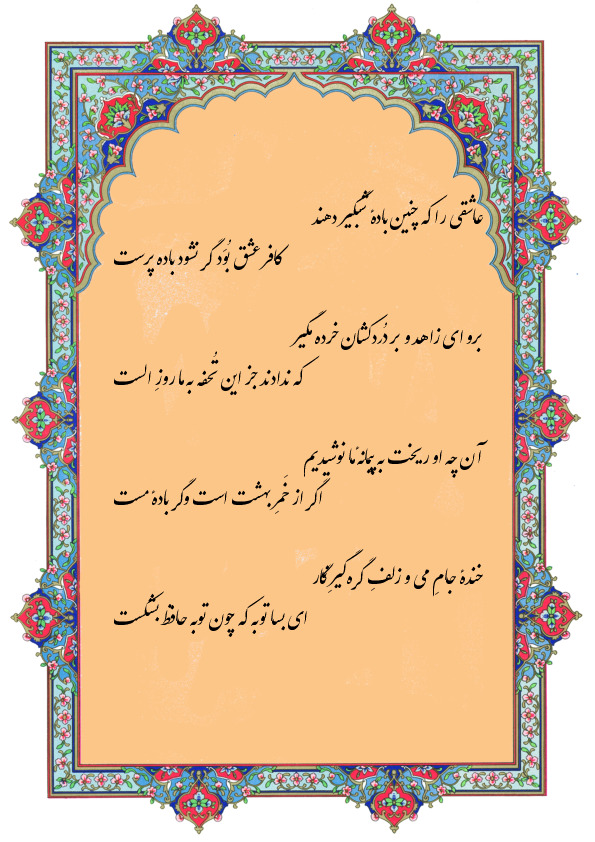 عاشقی را که چنین بادهٔ شبگیر دهند
کافر عشق بُوَد گر نشود باده پرست
برو ای زاهد و بر دُردکشان خرده مگیر
که ندادند جز این تُحفه به ما روزِ الست
آن چه او ریخت به پیمانهٔ ما نوشیدیم
اگر از خَمرِ بهشت است وگر بادهٔ مست
خندهٔ جامِ می و زلفِ گره گیرِ نگار
ای بسا توبه که چون توبه حافظ بشکست